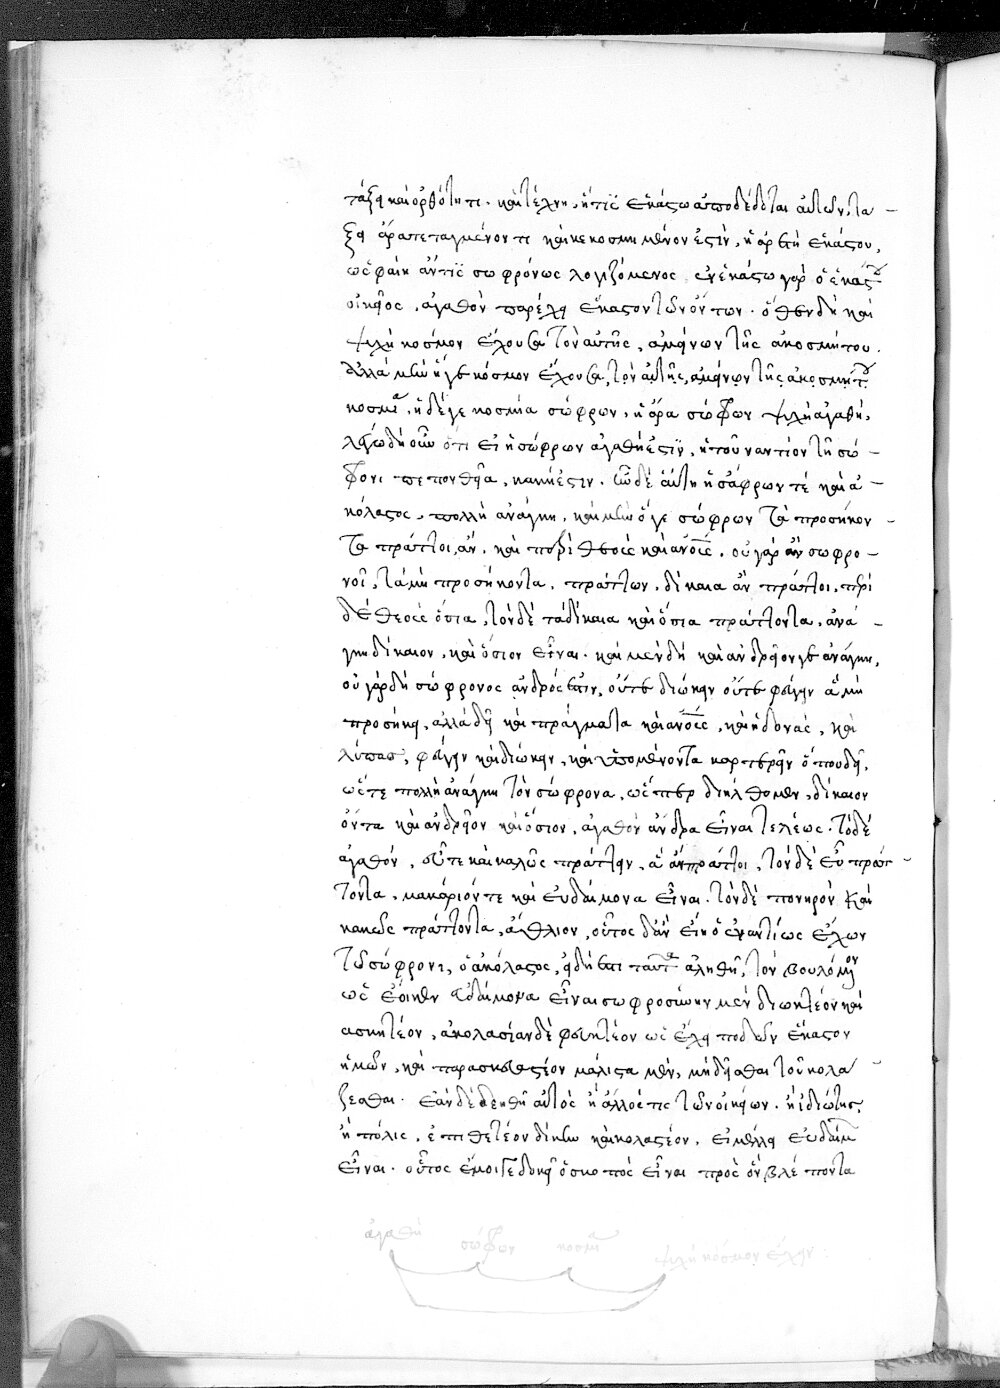 τάξει καὶ ὀρθότητι. καὶ τέχνῃ, ἥτις ἑκάστῳ ἀποδέδοται αὐτῶν, τά
ξει ἄρα τεταγμένον τι καὶ κεκοσμημένον ἐστὶν, ἡ ἀρετὴ ἑκάστου,
ὡς φαίη ἄν τις σωφρόνως λογιζόμενος, ἐν ἑκάστῳ γὰρ ὁ ἑκάστου
οἰκεῖος, ἀγαθὸν παρέχει ἕκαστον τῶν ὄντων. ὅθεν δὴ καὶ
ψυχὴ κόσμον ἔχουσα τὸν αὑτῆς, ἀμείνων τῆς ἀκοσμήτου.
Ἀλλὰ μὴν ἥ γε κόσμον ἔχουσα, τὸν αὑτῆς, ἀμείνων τῆς ἀκοσμήτου
κοσμία, ἡ δέ γε κοσμία σώφρων, ἡ ἄρα σώφρων ψυχὴ ἀγαθή,
λέγω δὴ οὖν ὅτι εἰ ἡ σώφρων ἀγαθή ἐστιν, ἡ τοὐναντίον τῇ σώ
φρονι πεπονθυῖα, κακή ἐστιν. ἦν δὲ αὕτη ἡ ἄφρων τὲ καὶ ἀ
κόλαστος, πολλὴ ἀνάγκη, καὶ μὴν ὅ γε σώφρων τὰ προσήκον
τα πράττοι, ἄν. καὶ περὶ θεοὺς καὶ ἀνους. οὐ γὰρ ἂν σωφρο
νοῖ, τὰ μὴ προσήκοντα, πράττων, δίκαια ἂν πράττοι, περὶ
δὲ θεοὺς ὅσια, τὸν δὲ τὰ δίκαια καὶ ὅσια πράττοντα, ἀνά
γκη δίκαιον, καὶ ὅσιον εἶναι. καὶ μὲν δὴ καὶ ἀνδρεῖόν γε ἀνάγκη,
οὐ γὰρ δὴ σώφρονος ἀνδρός ἐστιν, οὔτε διώκειν οὔτε φεύγειν ἃ μὴ
προσήκει, ἀλλὰ δεῖ καὶ πράγματα καὶ ἀνους, καὶ ἡδονὰς, καὶ
λύπας, φεύγειν καὶ διώκειν, καὶ ὑπομένοντα καρτερεῖν ὅπου δεῖ,
ὥστε πολλὴ ἀνάγκη τὸν σώφρονα, ὥσπερ διήλθομεν, δίκαιον
ὄντα καὶ ἀνδρεῖον καὶ ὅσιον, ἀγαθὸν ἄνδρα εἶναι τελέως. τὸν δὲ
ἀγαθόν, εὖ τε καὶ καλῶς πράττειν, ἃ ἂν πράττοι, τὸν δὲ εὖ πράτ
τοντα, μακάριόν τε καὶ εὐδαίμονα εἶναι. τὸν δὲ πονηρὸν καὶ
κακῶς πράττοντα, ἄθλιον, οὗτος δ' ἂν εἴη ὁ ἐναντίως ἔχων
τῷ σώφρονι, ὁ ἀκόλαστος, εἰ δή ἐστι ταῦτα ἀληθῆ, τὸν βουλόμενον
ὡς ἔοικεν εὐδαίμονα εἶναι σωφροσύνην μὲν διωκτέον καὶ
ἀσκητέον, ἀκολασίαν δὲ φευκτέον ὡς ἔχει ποδῶν ἕκαστον
ἡμῶν, καὶ παρασκευαστέον μάλιστα μὲν, μὴ δεῖσθαι τοῦ κολά
ζεσθαι. ἐὰν δὲ δεηθῇ αὐτὸς ἢ ἄλλός τις τῶν οἰκείων. ἢ ἰδιώτης
ἢ πόλις, ἐπιθετέον δίκην καὶ κολαστέον, εἰ μέλλει εὐδαίμων
εἶναι. οὗτος ἔμοιγε δοκεῖ ὁ σκοπὸς εἶναι πρὸς ὃν βλέποντα
ἀγαθή σώφρων κοσμία ψυχὴ κόσμον ἔχειν